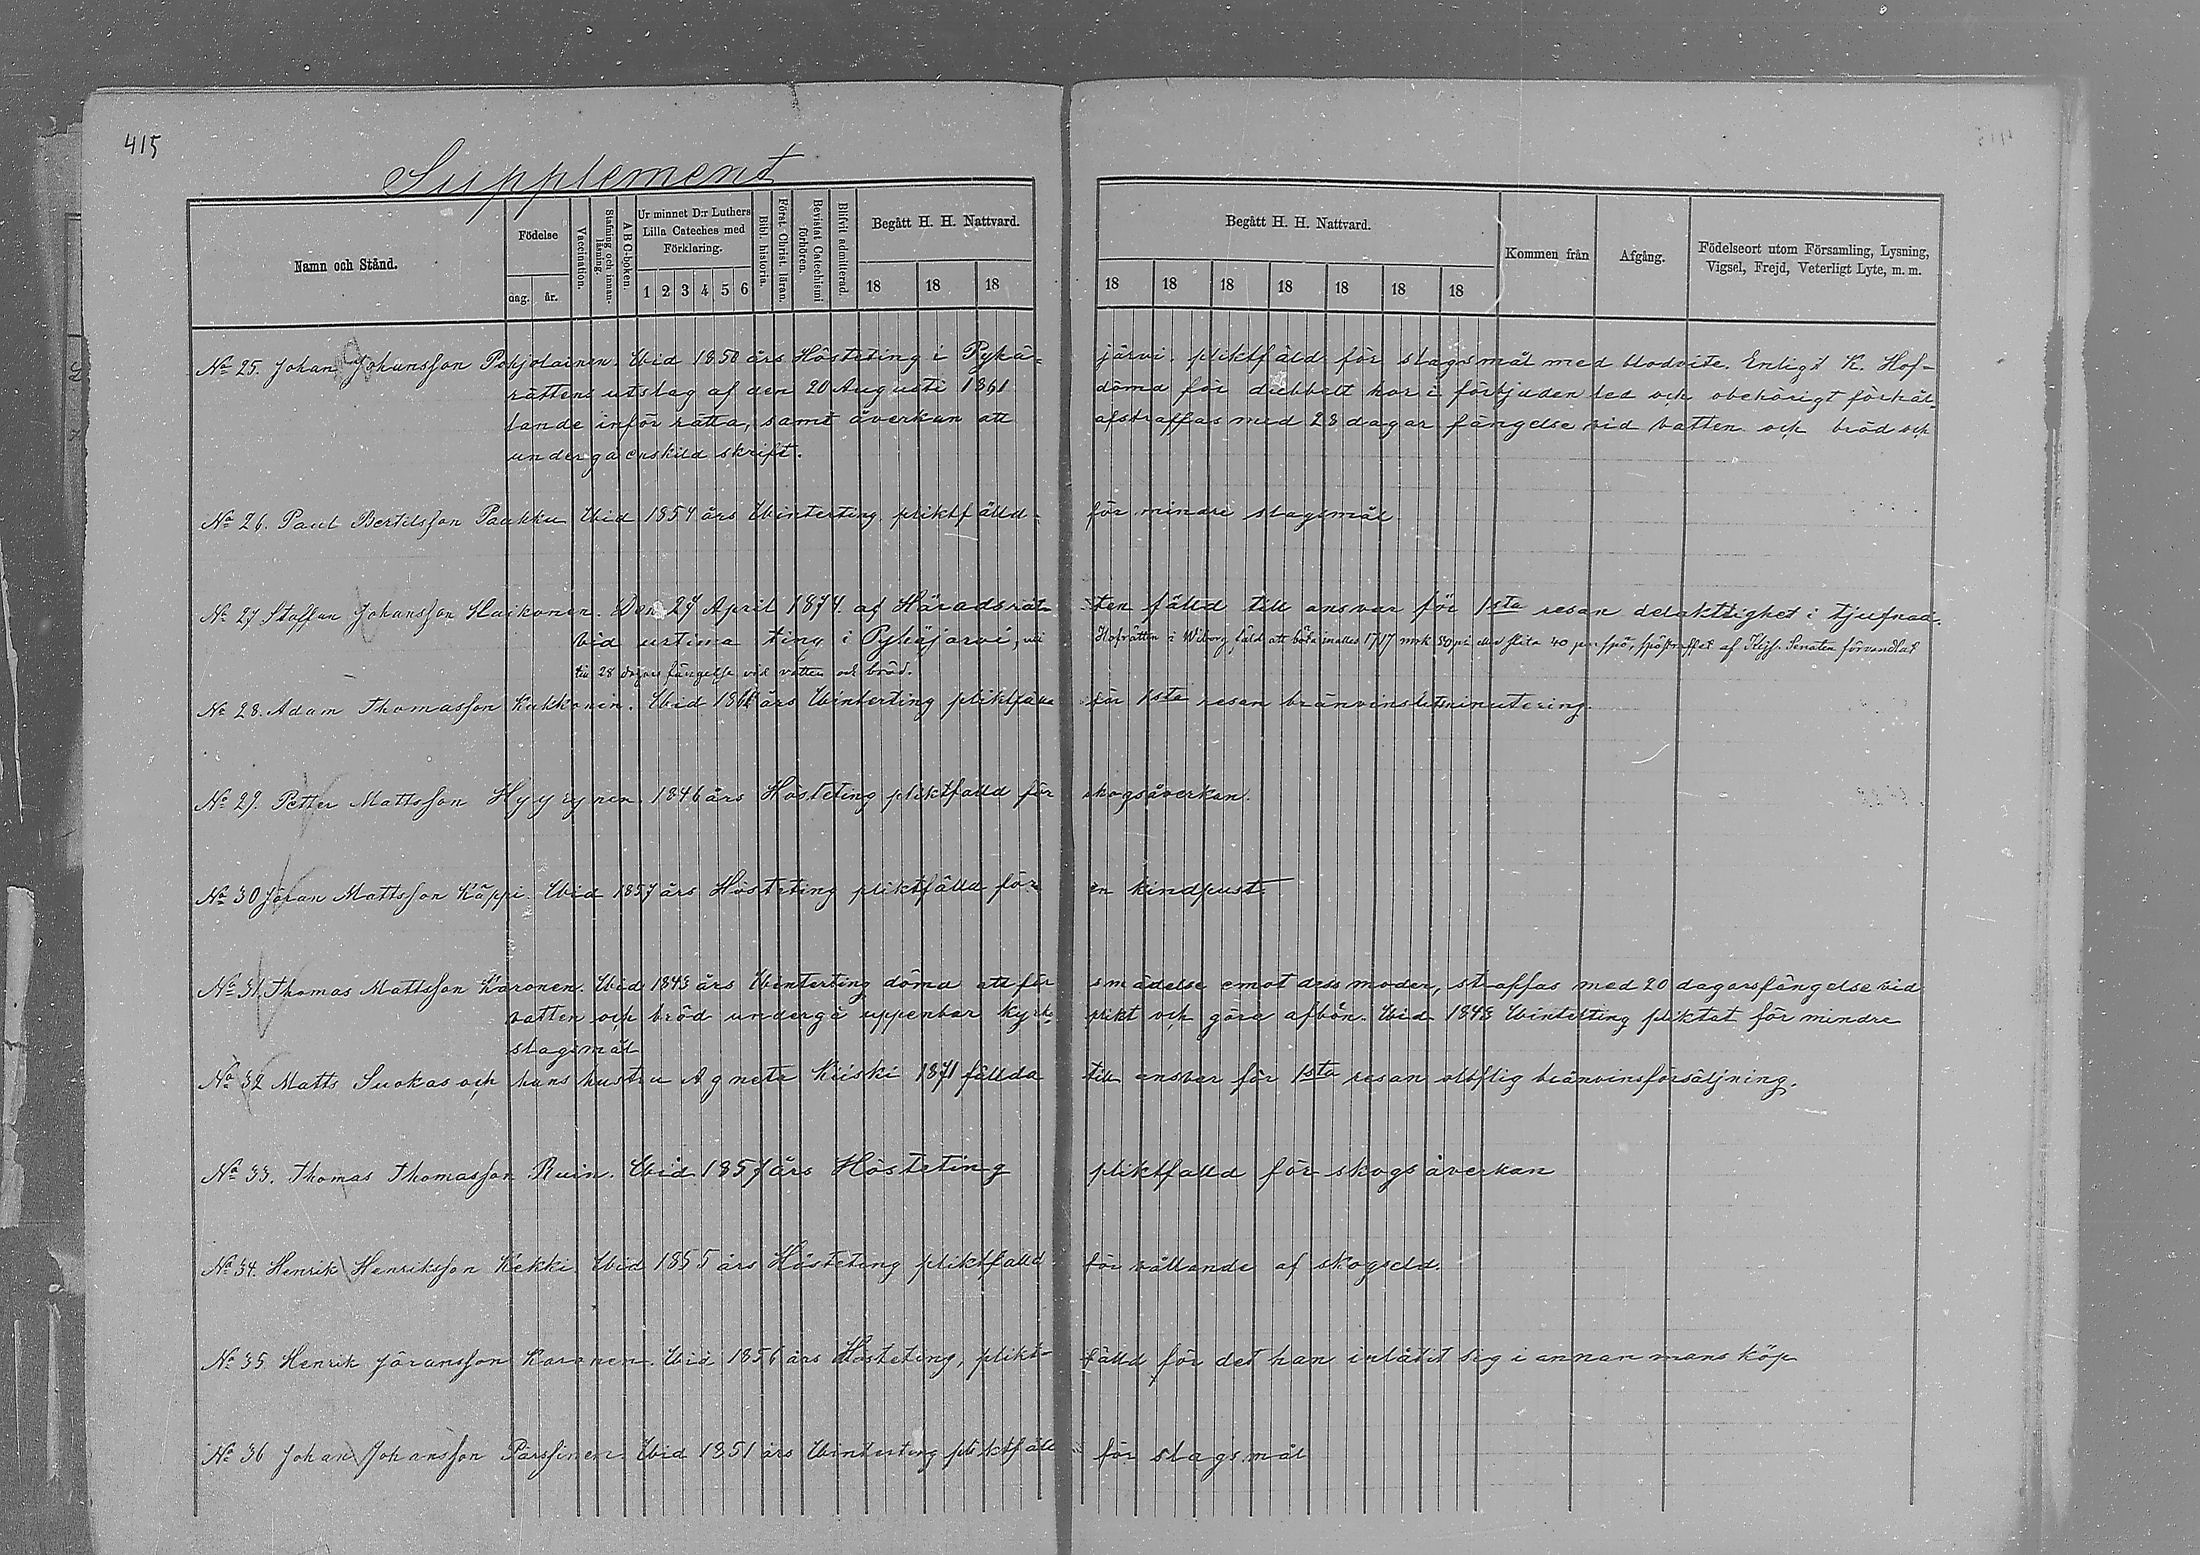 415
Supplement
Namn och Stånd.
Födelse
dag. år.
Vaccination.
Stafning och innanläsning.
ABC-boken.
Ur minnet D:r Luthers Lilla Cateches med Förklaring.
1 2 3 4 5 6
Bibl. historia.
Först. Christ. läran.
Bevistat Catechismi förhören.
Blifvit admitterad.
Begått H. H. Nattvard.
18 18 18
Begått H. H. Nattvard.
18 18 18 18 18 18 18
Kommen från
Afgång.
Födelseort utom Församling, Lysning, Vigsel, Frejd, Veterligt Lyte, m. m.
No 25. Johan Johansson Pohjolainen. Wid 1850 års Hösteting i Pyhä- järvi pliktfälld för slagsmål med blodvite. Enligt K. Hof-
rättens utslag af den 20 Augusti 1861 dömd för dubbelt hor i förbjuden led och obehörigt förhål-
lande inför rätta, samt åverkan att afstraffas med 28 dagar fängelse vid vatten och bröd och
undergå enskild skrift.
No 26. Paul Bertilsson Paukku Wid 1854 års Winterting pliktfälld för mindre slagsmål
No 27 Staffan Johansson Haikonen. Den 27 April 1874 af Häradsrät- ten fälld till ansvar för 1sta resan delaktighet i tjufnad.
vid urtima ting i Pyhäjärvi, Hofrätten i Wiborg, fäld att böta 1717 mrk 50 pi eller slita 40 par spö, spöstraffet af Kejs. Senaten förvandlat
till 28 dagars fängelse vid vatten och bröd.
No 28. Adam Thomasson Kukkonen. Wid 1861 års Winterting pliktfälld för 1sta resan bränvinsutminutering.
No 29. Petter Mattsson Hyyrynen 1846 års Hösteting pliktfälld för skogsåverkan.
No 30 Jöran Mattsson Käppi. Wid 1857 års Hösteting pliktfälld för en kindpust.
No 31. Thomas Mattsson Karonen. Wid 1843 års Winterting dömd att för smädelse emot dess moder, straffas med 20 dagars fängelse vid
vatten och bröd undergå uppenbar kyrk- plikt och göra afbön. Wid 1843 Winterting pliktat för mindre
slagsmål
No 32 Matts Suokas och hans hustru Agneta Kiiski 1871 fällda till ansvar för 1sta resan oloflig bränvinsförsäljning.
No 33. Thomas Thomasson Ruin. Wid 1857 års Hösteting pliktfälld för skogsåverkan
No 34. Henrik Henriksson Kekki Wid 1855 års Hösteting pliktfälld för vållande af skogseld.
No 35 Henrik Jöransson Karonen. Wid 1856 års Hösteting, plikt- fälld för det han inlåtit sig i annan mans köp
No 36 Johan Johansson Pärssinen. Wid 1851 års Winterting pliktfälld för slagsmål